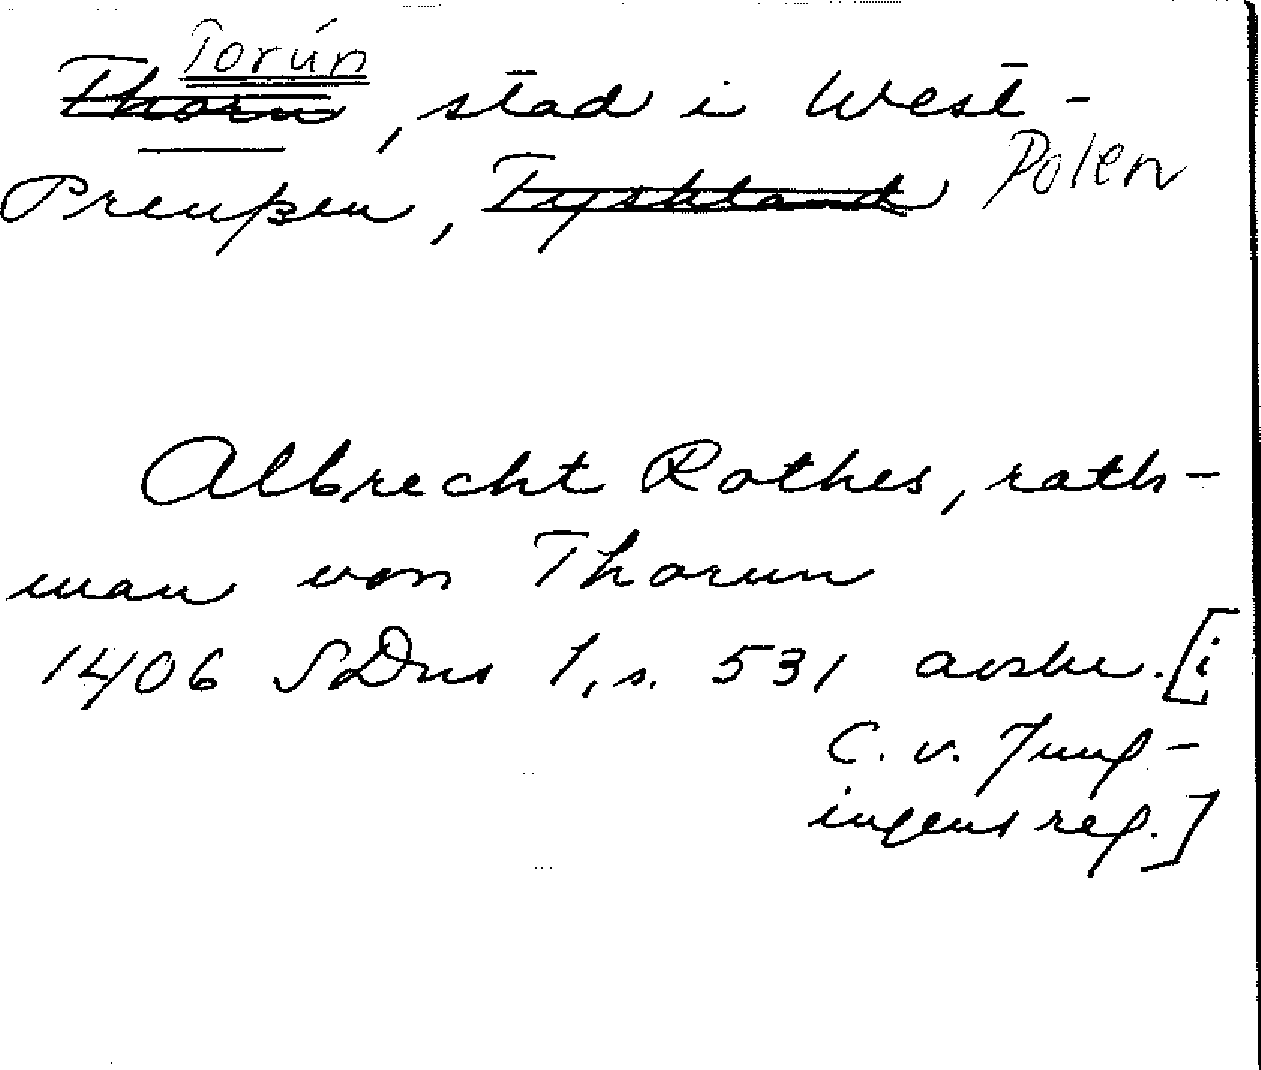 Torún
Thorn, stad i West-
Preußen, Tyskland Polen
Albrecht Rothes, rath-
man von Thorun
1406 SDns 1, s. 531 avskr. [i
C. v. Jung-
ingens reg.]